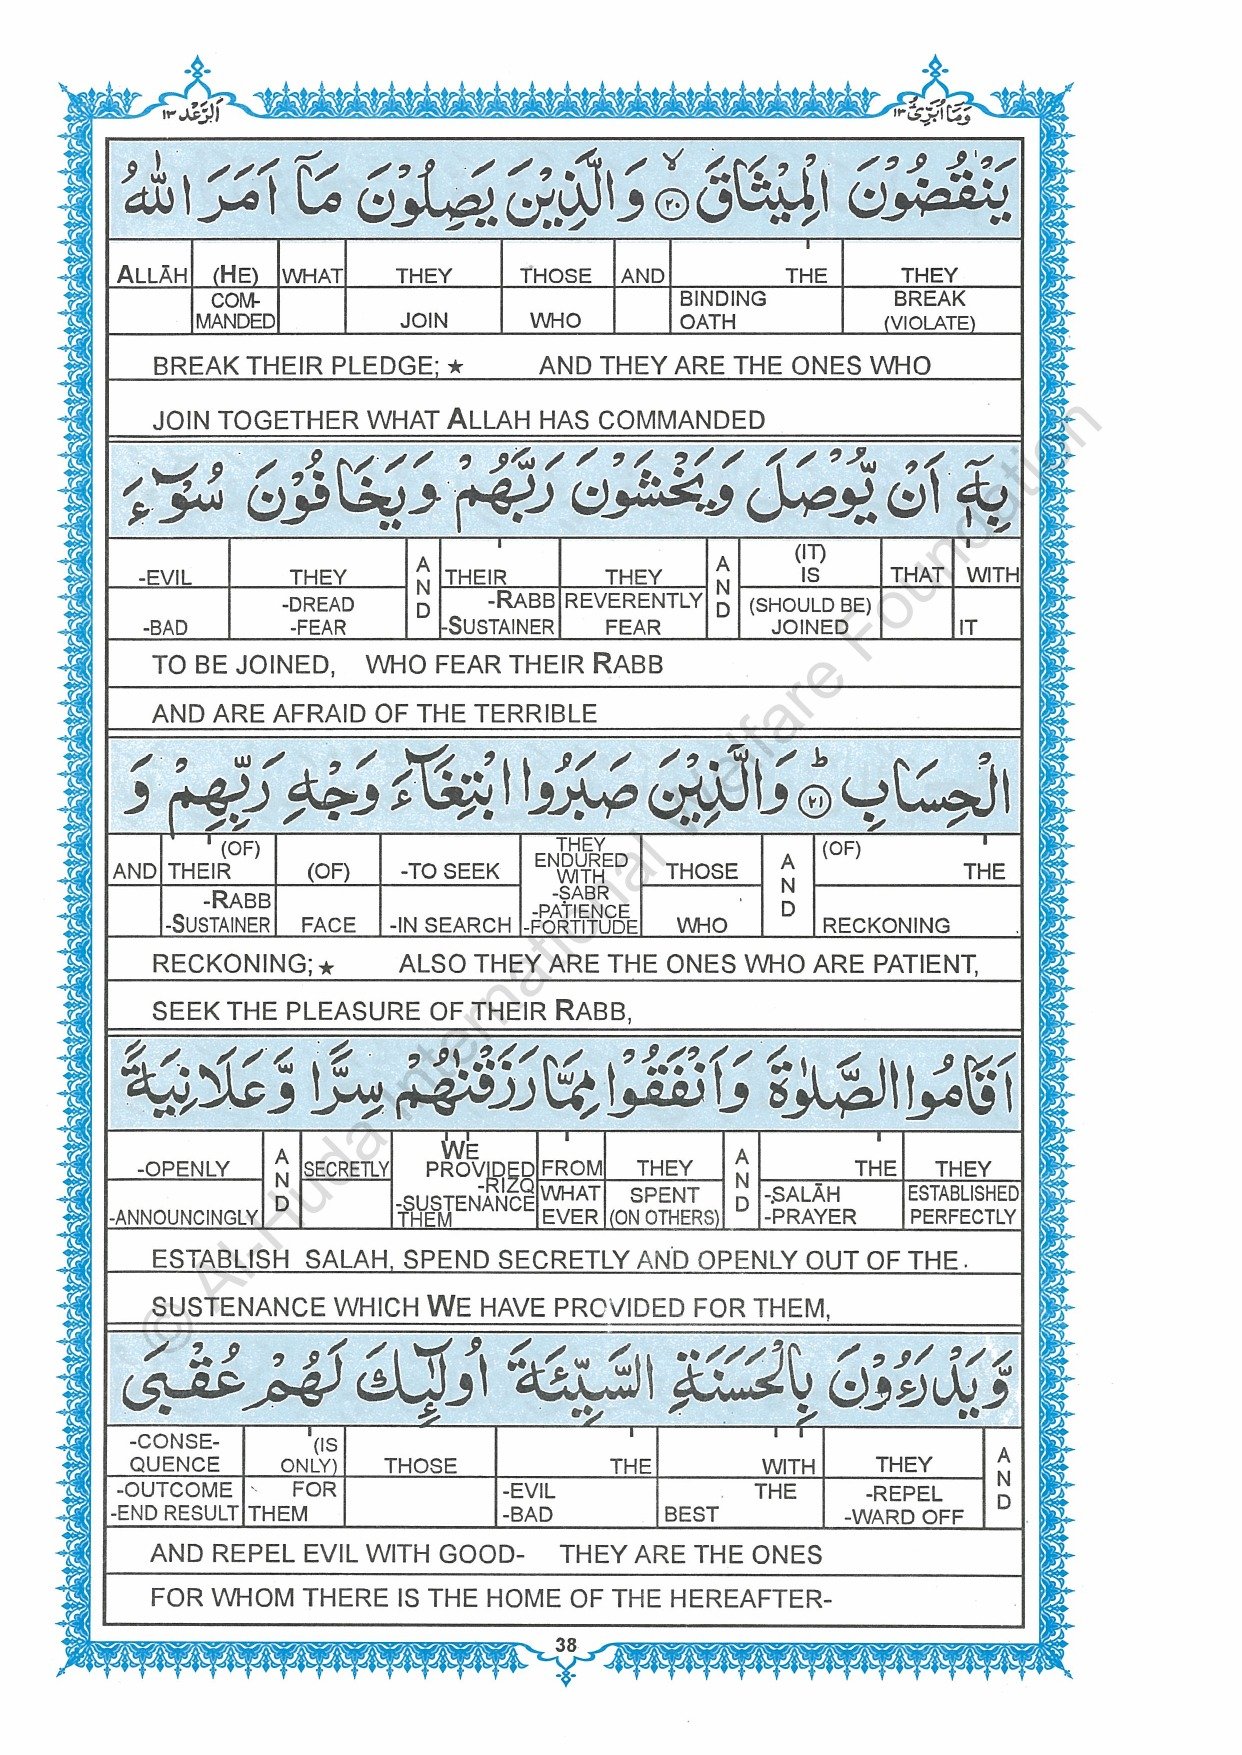 اَلرَّعْد ١٣
وَمَا اُبَرِّئُ ١٣
يَنْقُضُوْنَ الْمِيْثَاقَ ۙ ٢٠ وَالَّذِيْنَ يَصِلُوْنَ مَاۤ اَمَرَ اللّٰهُ
ALLĀH (HE) WHAT THEY THOSE AND THE THEY
COM-MANDED JOIN WHO BINDING OATH BREAK (VIOLATE)
BREAK THEIR PLEDGE; ★ AND THEY ARE THE ONES WHO
JOIN TOGETHER WHAT ALLAH HAS COMMANDED
بِهٖۤ اَنْ يُّوْصَلَ وَيَخْشَوْنَ رَبَّهُمْ وَيَخَافُوْنَ سُوْٓءَ
-EVIL THEY AND THEIR THEY AND (IT) IS THAT WITH
-BAD -DREAD -FEAR -RABB -SUSTAINER REVERENTLY FEAR (SHOULD BE) JOINED IT
TO BE JOINED, WHO FEAR THEIR RABB
AND ARE AFRAID OF THE TERRIBLE
الْحِسَابِ ؕ ٢١ وَالَّذِيْنَ صَبَرُوا ابْتِغَآءَ وَجْهِ رَبِّهِمْ وَ
AND THEIR (OF) (OF) -TO SEEK THEY ENDURED WITH -SABR -PATIENCE -FORTITUDE THOSE AND (OF) THE
-RABB -SUSTAINER FACE -IN SEARCH WHO RECKONING
RECKONING; ★ ALSO THEY ARE THE ONES WHO ARE PATIENT,
SEEK THE PLEASURE OF THEIR RABB,
اَقَامُوا الصَّلٰوةَ وَاَنْفَقُوْا مِمَّا رَزَقْنٰهُمْ سِرًّا وَّعَلَانِيَةً
-OPENLY AND SECRETLY WE PROVIDED -RIZQ -SUSTENANCE THEM FROM THEY AND THE THEY
-ANNOUNCINGLY WHAT EVER SPENT (ON OTHERS) -SALĀH -PRAYER ESTABLISHED PERFECTLY
ESTABLISH SALAH, SPEND SECRETLY AND OPENLY OUT OF THE
SUSTENANCE WHICH WE HAVE PROVIDED FOR THEM,
وَّيَدْرَءُوْنَ بِالْحَسَنَةِ السَّيِّئَةَ اُولٰٓئِكَ لَهُمْ عُقْبَى
-CONSE-QUENCE (IS ONLY) THOSE THE WITH THEY AND
-OUTCOME -END RESULT FOR THEM -EVIL -BAD THE BEST -REPEL -WARD OFF
AND REPEL EVIL WITH GOOD- THEY ARE THE ONES
FOR WHOM THERE IS THE HOME OF THE HEREAFTER-
38
© Al-Huda International Welfare Foundation